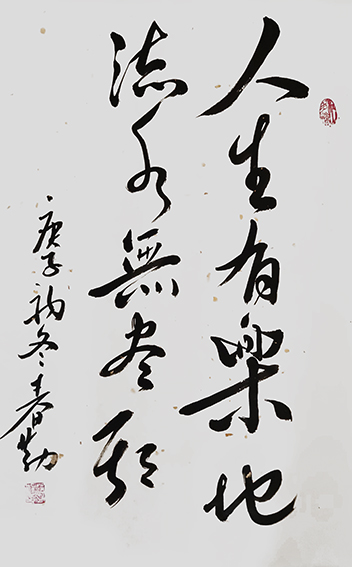 人生有樂地
流水無尽期
庚子初冬春